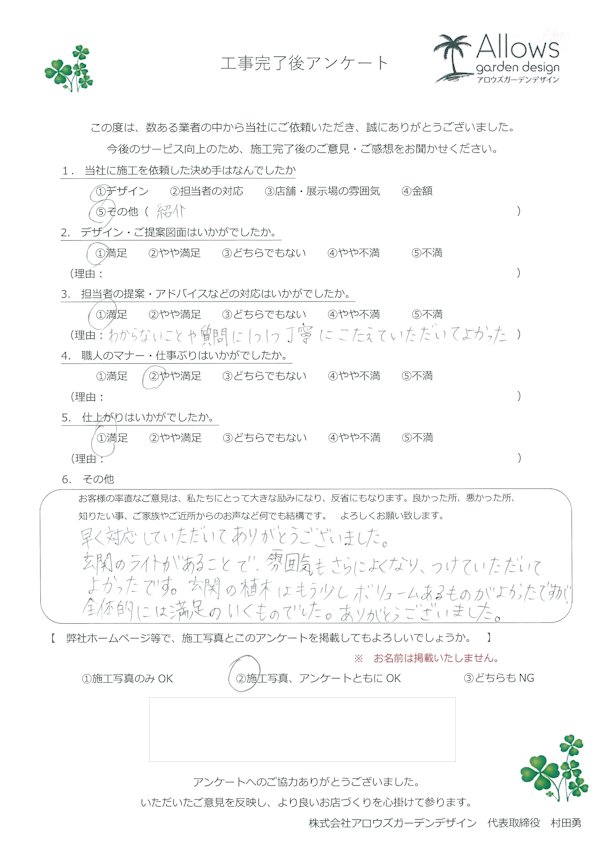 工事完了後アンケート
Allows
garden design
アロウズガーデンデザイン
この度は、数ある業者の中から当社にご依頼いただき、誠にありがとうございました。
今後のサービス向上のため、施工完了後のご意見・ご感想をお聞かせください。
１． 当社に施工を依頼した決め手はなんでしたか
①デザイン ②担当者の対応 ③店舗・展示場の雰囲気 ④金額
⑤その他（ 紹介 ）
2． デザイン・ご提案図面はいかがでしたか。
①満足 ②やや満足 ③どちらでもない ④やや不満 ⑤不満
（理由： ）
3． 担当者の提案・アドバイスなどの対応はいかがでしたか。
①満足 ②やや満足 ③どちらでもない ④やや不満 ⑤不満
（理由：わからないことや質問に1つ1つ丁寧にこたえていただいてよかった ）
4． 職人のマナー・仕事ぶりはいかがでしたか。
①満足 ②やや満足 ③どちらでもない ④やや不満 ⑤不満
（理由： ）
5． 仕上がりはいかがでしたか。
①満足 ②やや満足 ③どちらでもない ④やや不満 ⑤不満
（理由： ）
6． その他
お客様の率直なご意見は、私たちにとって大きな励みになり、反省にもなります。良かった所、悪かった所、
知りたい事、ご家族やご近所からのお声など何でも結構です。 よろしくお願い致します。
早く対応していただいてありがとうございました。
玄関のライトがあることで、雰囲気もさらによくなり、つけていただいて
よかったです。玄関の植木はもう少しボリュームあるものがよかったですが、
全体的には満足のいくものでした。ありがとうございました。
【 弊社ホームページ等で、施工写真とこのアンケートを掲載してもよろしいでしょうか。 】
※ お名前は掲載いたしません。
①施工写真のみ OK ②施工写真、アンケートともに OK ③どちらも NG
アンケートへのご協力ありがとうございました。
いただいたご意見を反映し、より良いお店づくりを心掛けて参ります。
株式会社アロウズガーデンデザイン 代表取締役 村田勇